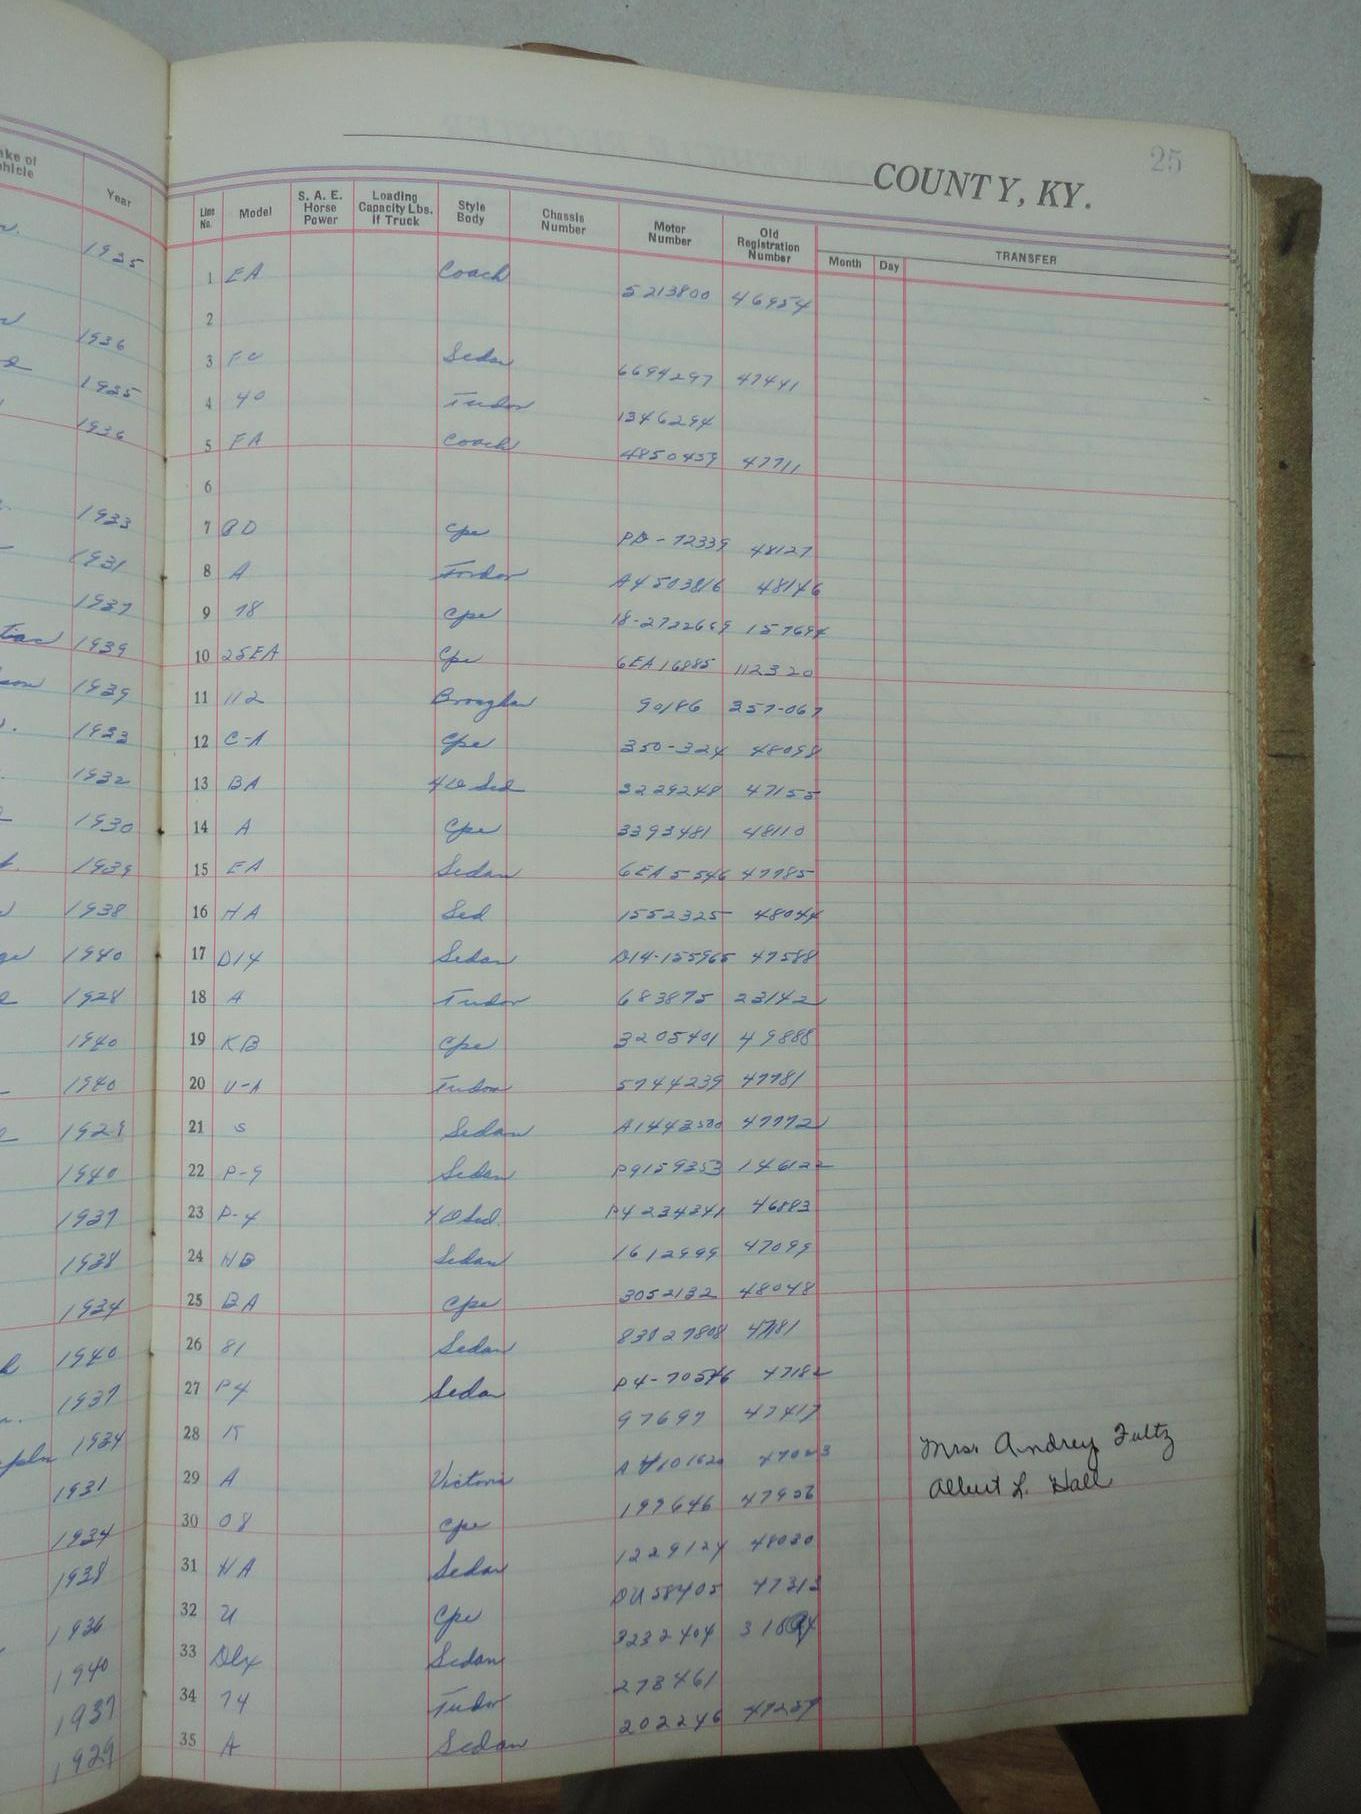 25
COUNTY, KY.
hicle Year
Line No. Model S. A. E. Horse Power Loading Capacity Lbs. If Truck Style Body Chassis Number Motor Number Old Registration Number Month Day TRANSFER
1935 1 EA Coach 5213800 46954
2
1936 3 FC Sedan 6694297 47441
1935 4 40 Tudor 1346294
1936 5 FA Coach 4850459 47711
6
1933 7 PD Cpe PD-72339 48127
1931 8 A Fordor A4503816 48146
1937 9 78 Cpe 18-2722669 157694
1939 10 25EA Cpe 6EA16885 112320
1939 11 112 Brougham 90186 357-067
1933 12 C-A Cpe 350-324 48098
1932 13 BA 4D Sed 3229248 47155
1930 14 A Cpe 3393481 48110
1939 15 EA Sedan 6EA5546 47785
1938 16 HA Sed 1552325 48044
1940 17 D14 Sedan D14-155965 47588
1928 18 A Tudor 683875 23142
1940 19 KB Cpe 3205401 49888
1940 20 U-A Tudor 5744239 47781
1929 21 S Sedan A1443500 47772
1940 22 P-9 Sedan P9159353 146122
1937 23 P-4 4D Sed. P4234341 46883
1938 24 HB Sedan 1612999 47099
1934 25 BA Cpe 3052132 48048
1940 26 81 Sedan 83027808 47181
1937 27 P4 Sedan P4-70546 47182
1934 28 K 97697 47417 Mrs. Andrey Fultz
1931 29 A Victoria A4101620 47023 Albert L. Hall
1934 30 08 Cpe 199646 47906
1938 31 HA Sedan 1229124 48030
1936 32 U Cpe DU58405 47313
1940 33 Dlx Sedan 3232404
1937 34 74 Tudor 278461
1929 35 A Sedan 202246 47259